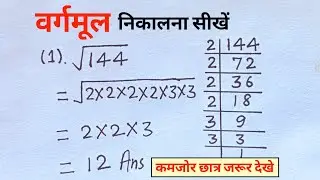 वर्गमूल निकालना सीखें
(1). √144
= √2×2×2×2×3×3
= 2×2×3
= 12 Ans
2 | 144
2 | 72
2 | 36
2 | 18
3 | 9
3 | 3
1
कमजोर छात्र जरूर देखे